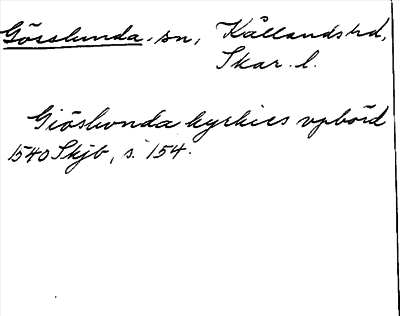 Gösslunda, sn, Kållandshd,
Skar. l.
Giöslunda kyrkies vpbörd
1540 Skjb, s. 154.